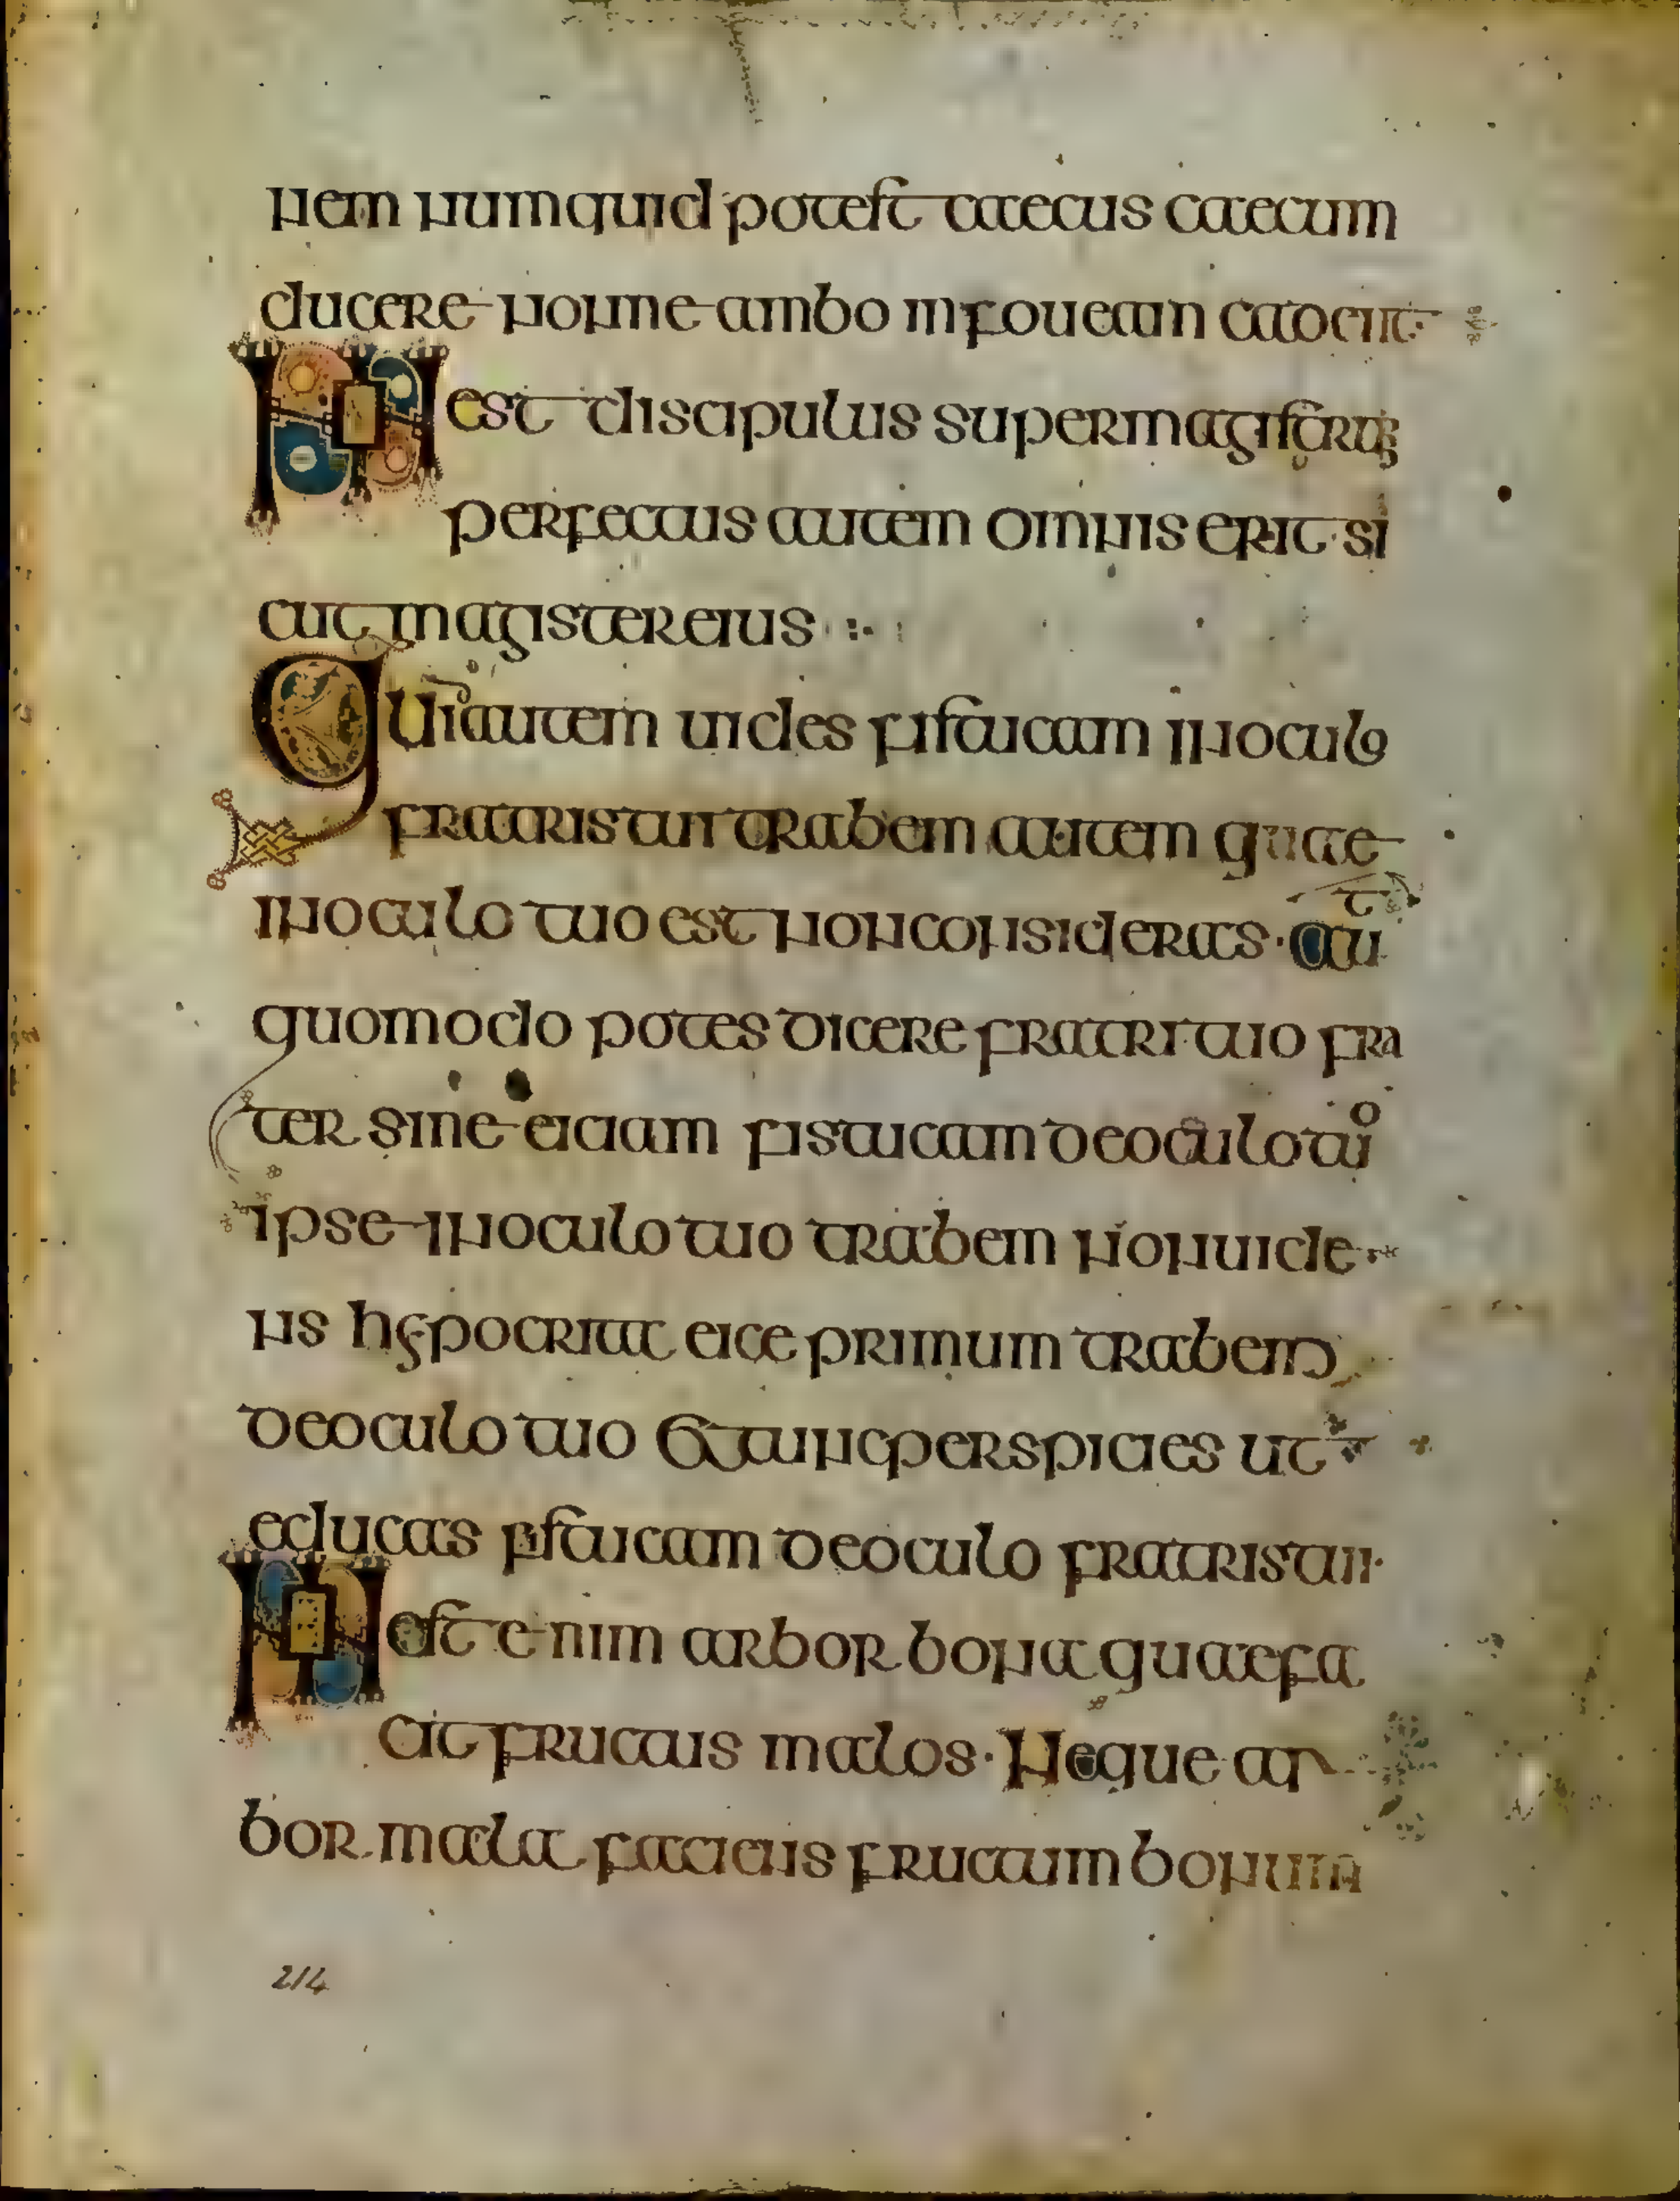 nem numquid potest caecus caecum
ducere nonne ambo in foueam cadent
Non est discipulus super magistrum
perfectus autem omnis erit si
cut magister eius
Qui autem uides fistucam in oculo
fratris tui trabem autem quae
in oculo tuo est non consideras · aut
quomodo potes dicere fratri tuo fra
ter sine eiciam fistucam de oculo tuo
ipse in oculo tuo trabem non uide
ns hypocrita eice primum trabem
de oculo tuo et tunc perspicies ut
educas fistucam de oculo fratris tui·
Non est enim arbor bona quae fa
cit fructus malos · Neque ar
bor mala faciens fructum bonum
214